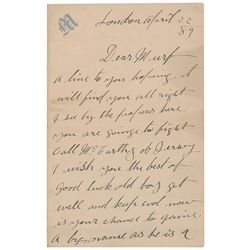 M
London April 22
/89
Dear Murf
a line to you hoping it
will find you all right
I see by the papers here
you are going to fight
Call McCarthy of Jersey
I wish you the best of
good luck old boy get
well and keep cool now
is your chance to gaine
a big name as he is a